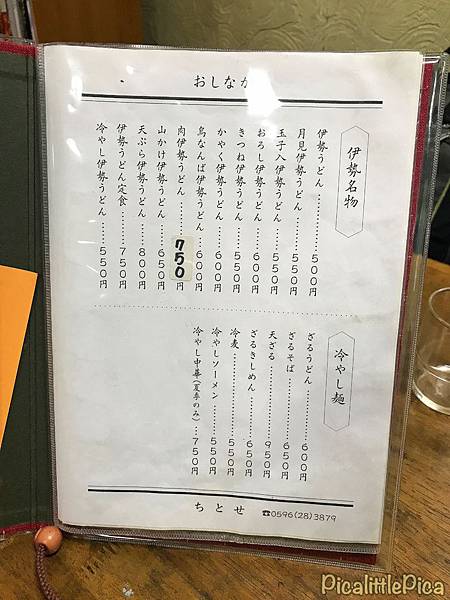 おしなが
伊勢名物
伊勢うどん……500円
月見伊勢うどん……550円
玉子入伊勢うどん……550円
おろし伊勢うどん……600円
きつね伊勢うどん……550円
かやく伊勢うどん……600円
鳥なんば伊勢うどん……600円
肉伊勢うどん……750円
山かけ伊勢うどん……650円
天ぷら伊勢うどん……800円
伊勢うどん定食……750円
冷やし伊勢うどん……550円
冷やし麺
ざるうどん……600円
ざるそば……650円
天ざる……950円
ざるきしめん……650円
冷麦……550円
冷やしソーメン……550円
冷やし中華(夏季のみ)……750円
ちとせ ☎0596(28)3879
PicalittlePica